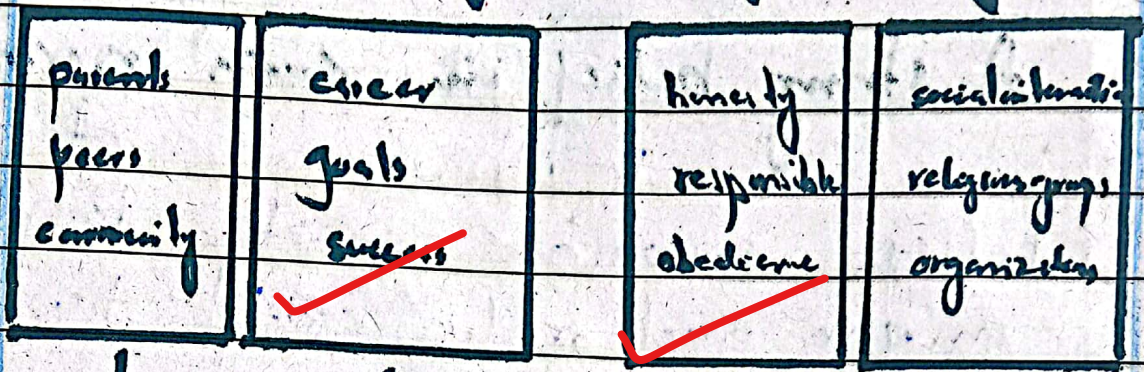 parents
peers
community
career
goals
success
honesty
responsible
obedience
social interactio
religious groups
organizations